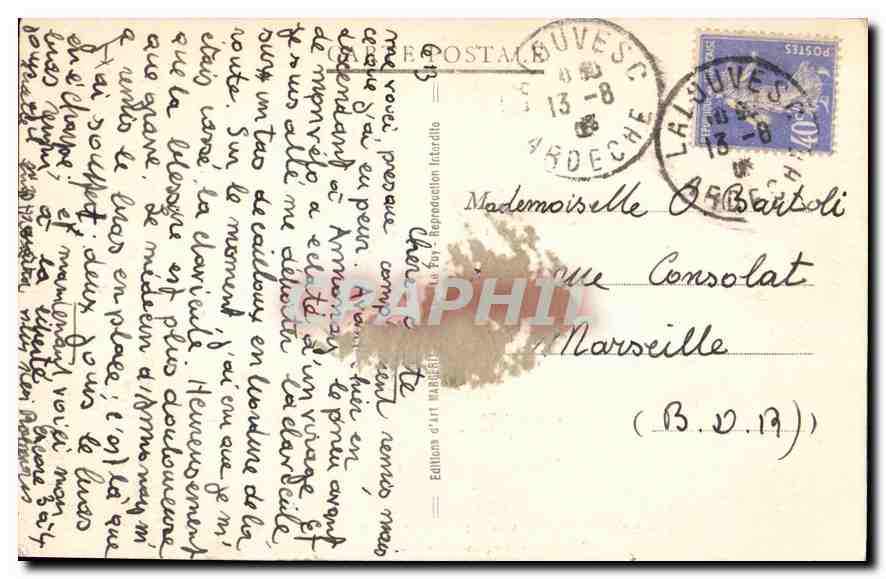 CARTE POSTALE
LALOUVESC
13-8
ARDECHE
LALOUVESC
13-8
ARDECHE
POSTES
40c
Mademoiselle O Bartoli
rue Consolat
Marseille
(B.D.R)
Editions d'Art MARGERIT Le Puy - Reproduction Interdite
CPAPHIL
le 13
Chère
me voici presque remis mais
ce que j'ai eu peur. hier en
descendant à Annonay le pneu avant
de mon vélo a eclaté d'un virage et
je suis allé me démettre la clavicule
sur un tas de cailloux en bordure de la
route. Sur le moment j'ai cru que je m'
étais cassé la clavicule. Heureusement
que la blessure est plus douloureuse
que grave. Le médecin d'Annonay m'
a remis le bras en place, c'est là que
j'ai souffert. deux jours le bras
en écharpe et maintenant voici mon
bras rendu à la liberté. Encore 3 à 4
jours